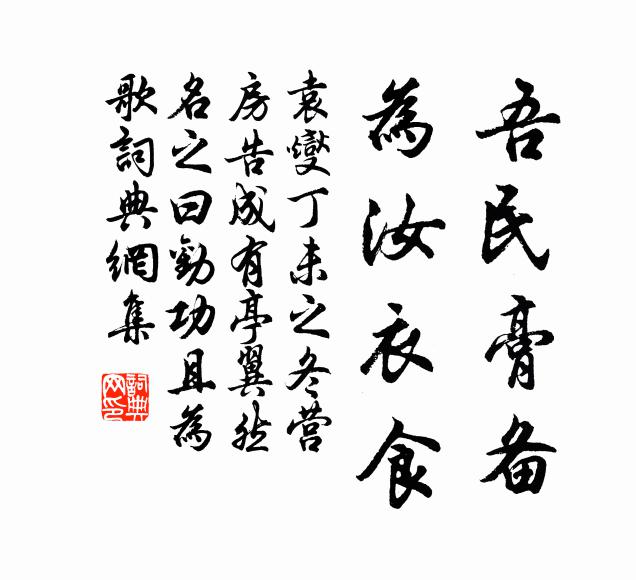 吾民膏备
為汝衣食
袁燮丁未之冬营
房告成有亭翼然
名之曰勸功且為
歌詞典網集
詞典
网印